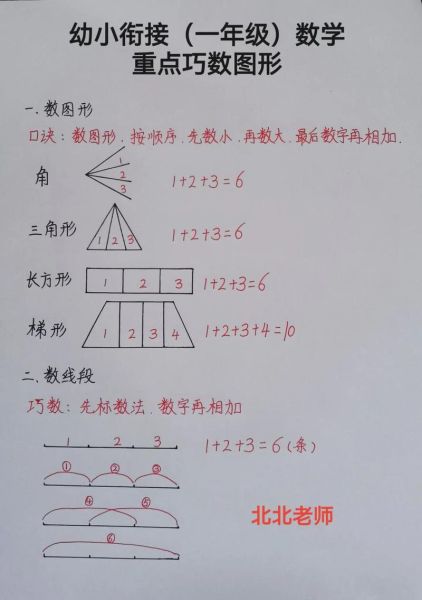 幼小衔接（一年级）数学
重点巧数图形
一.数图形
口诀：数图形.按顺序.先数小.再数大.最后数字再相加.
角 1 2 3 1+2+3=6
三角形 1 2 3 1+2+3=6
长方形 1 2 3 1+2+3=6
梯形 1 2 3 4 1+2+3+4=10
二.数线段
巧数：先标数法.数字再相加
1 2 3 1+2+3=6(条)
① ② ③
④ ⑤
⑥
北北老师